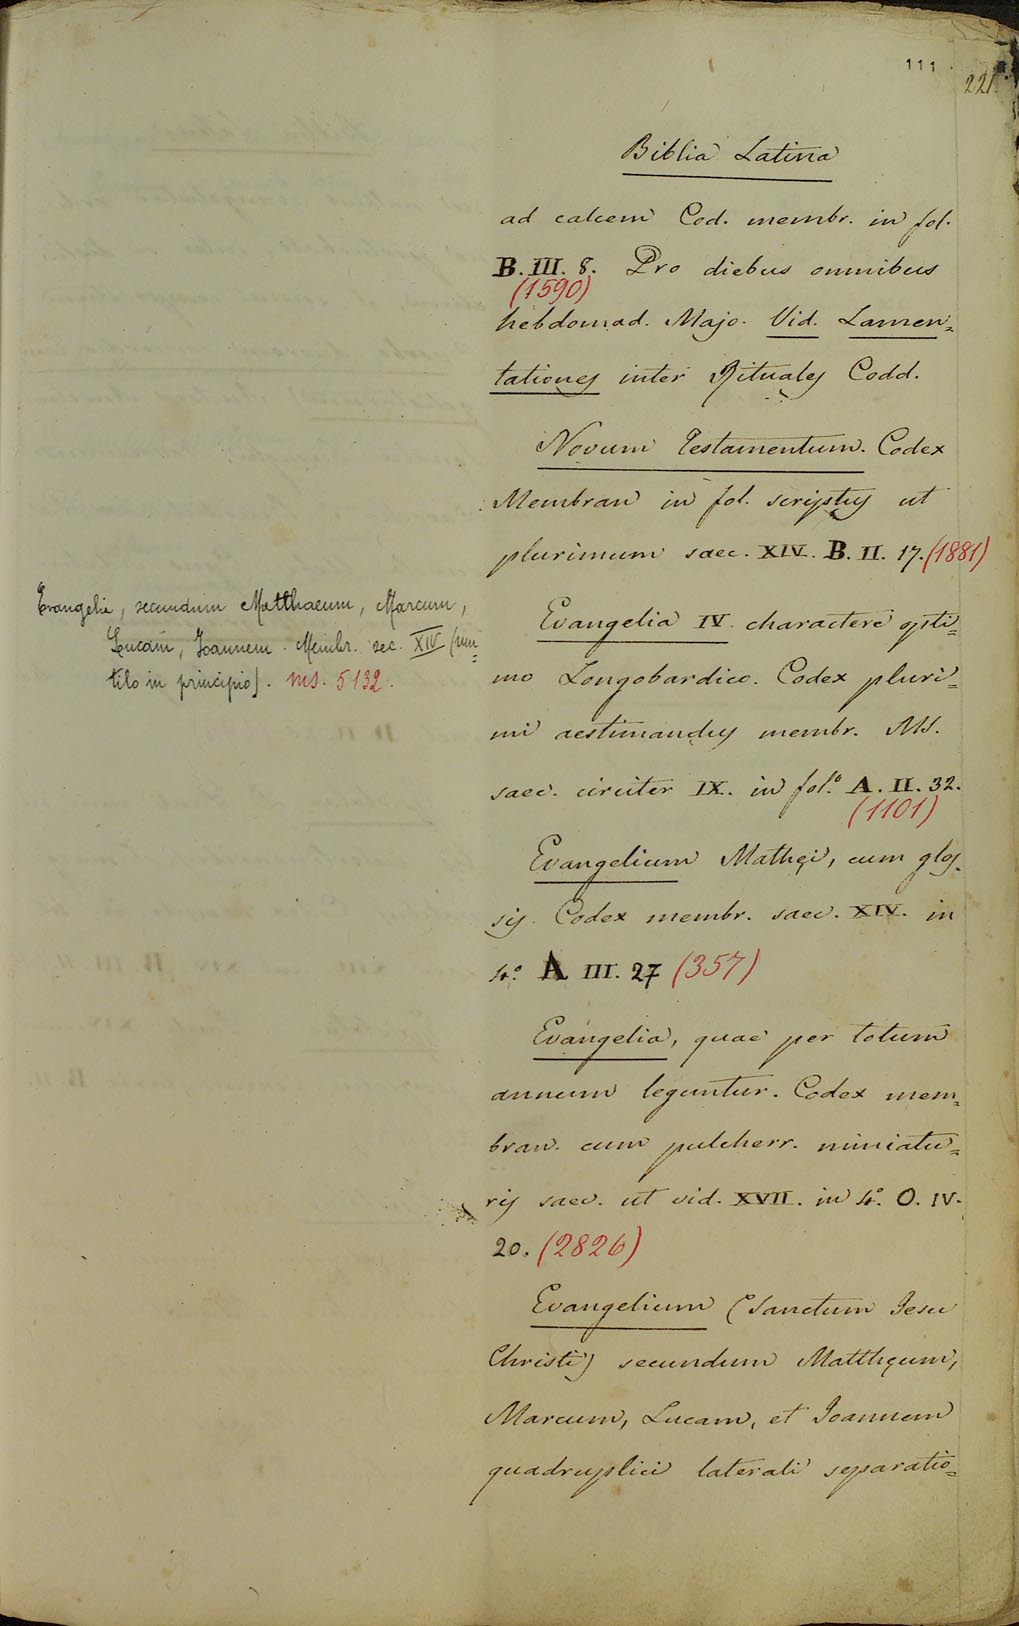 111
221
Biblia Latina
ad calcem Cod. membr. in fol.
B. III. 8. Pro diebus omnibus
(1590)
hebdomad. Majo. Vid. Lamen=
tationes inter Rituales Codd.
Novum Testamentum. Codex
Membran in fol. scriptus ut
plurimum saec. XIV. B. II. 17. (1881)
Evangelia, secundum Matthaeum, Marcum,
Lucam, Joannem. Membr. sec. XIV (mu=
tilo in principio). ms. 5132.
Evangelia IV. charactere opti=
mo Longobardico. Codex pluri=
mi aestimandus membr. MS.
saec. circiter IX. in fol.º A. II. 32.
(1101)
Evangelium Mathęi, cum glos=
sis. Codex membr. saec. XIV. in
4.º A III. 27 (357)
Evangelia, quae per totum
annum leguntur. Codex mem=
bran. cum pulcherr. miniatu=
ris saec. ut vid. XVII. in 4.º O. IV.
20. (2826)
Evangelium (Sanctum Jesu
Christi) secundum Matthęum,
Marcum, Lucam, et Joannem
quadruplici laterali separatio=